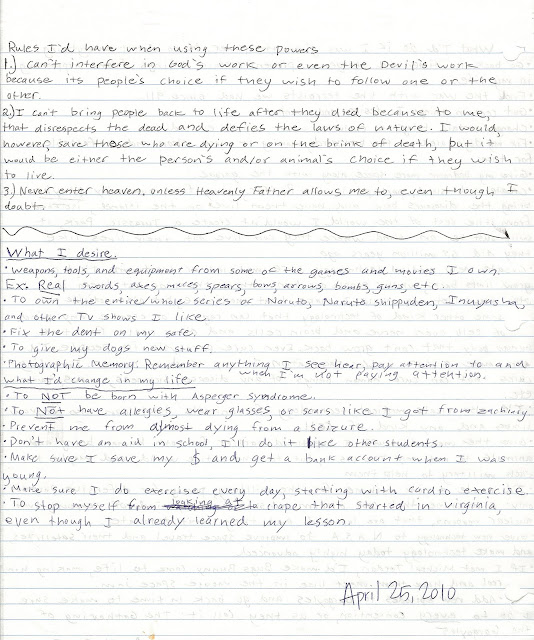 Rules I'd have when using these powers
1.) Can't interfere in God's work or even the Devil's work
because its people's choice if they wish to follow one or the
other.
2.) I can't bring people back to life after they died because to me,
that disrespects the dead and defies the laws of nature. I would,
however, save those who are dying or on the brink of death, but it
would be either the person's and/or animal's choice if they wish
to live.
3.) Never enter heaven, unless Heavenly Father allows me to, even though I
doubt.
What I desire.
• Weapons, tools, and equipment from some of the games and movies I own
Ex. Real swords, axes, maces, spears, bows, arrows, bombs, guns, etc.
• To own the entire/whole series of Naruto, Naruto shippuden, Inuyasha,
and other TV shows I like.
• Fix the dent on my safe.
• To give my dogs new stuff.
• Photographic Memory: Remember anything I see hear, pay attention to and
when I'm not paying attention.
What I'd change in my life
• To NOT be born with Asperger Syndrome.
• To Not have allergies, wear glasses, or scars like I got from
• Prevent me from almost dying from a seizure.
• Don't have an aid in school, I'll do it like other students.
• Make sure I save my $ and get a bank account when I was
young.
• Make sure I do exercise every day, starting with cardio exercise.
• To stop myself from looking at to that started in Virginia,
even though I already learned my lesson.
April 25, 2010